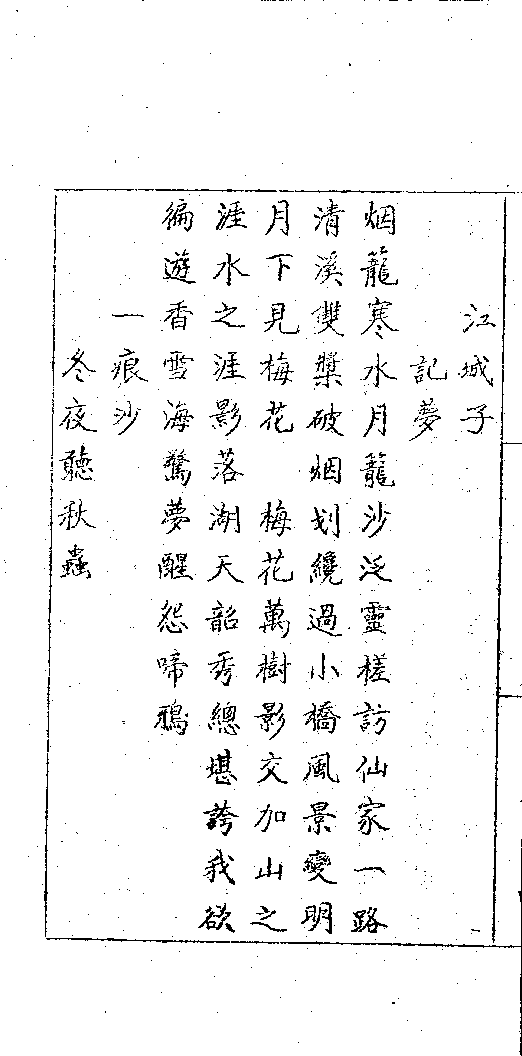 江城子
記夢
烟籠寒水月籠沙泛靈槎訪仙家一路
清溪雙槳破烟划纔過小橋風景變明
月下見梅花　梅花萬樹影交加山之
涯水之涯影落湖天韶秀總堪誇我欲
徧遊香雪海驚夢醒怨啼鴉
一痕沙
冬夜聽秋蟲